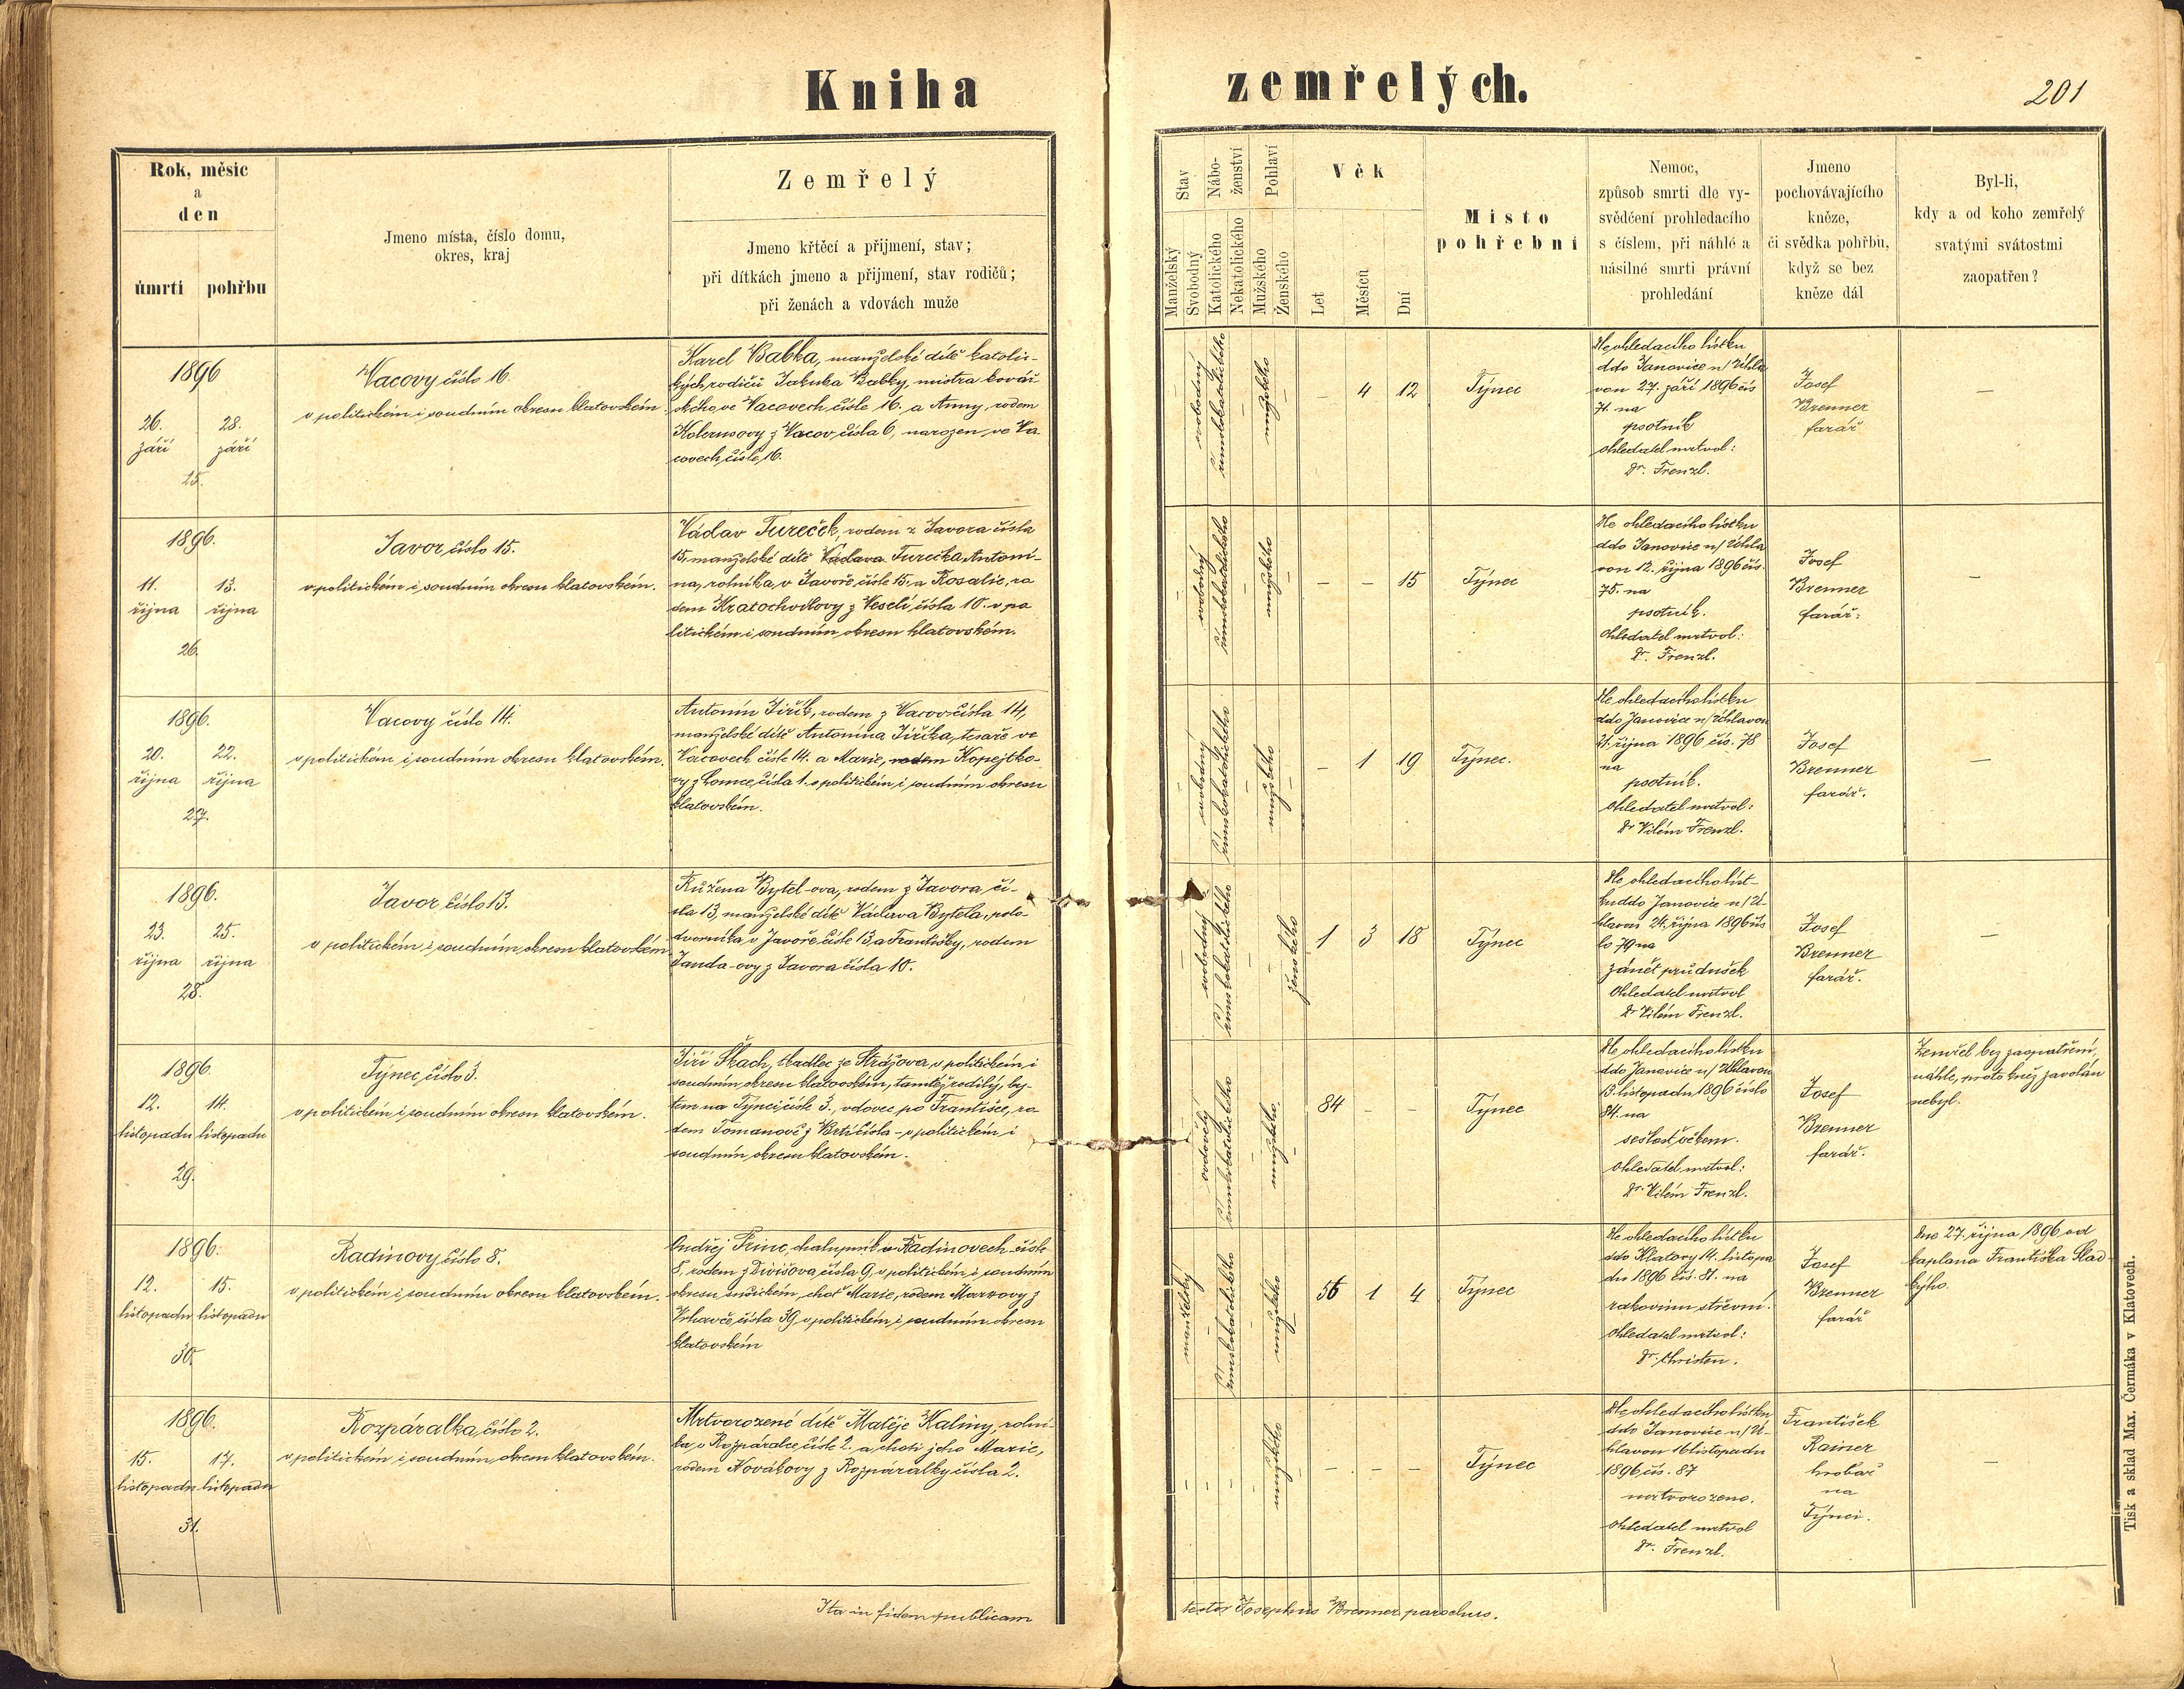 Kniha zemřelých.
201
Rok, měsíc
a
den
úmrtí pohřbu
Jmeno místa, číslo domu,
okres, kraj
Zemřelý
Jmeno křtěcí a přijmení, stav;
při dítkách jmeno a přijmení, stav rodičů;
při ženách a vdovách muže
Stav
Manželský
Svobodný
Nábo-
ženství
Katolického
Nekatolického
Pohlaví
Mužského
Ženského
Věk
Let
Měsíců
Dní
Místo
pohřební
Nemoc,
způsob smrti dle vy-
svědčení prohledacího
s číslem, při náhlé a
násilné smrti právní
prohledání
Jmeno
pochovávajícího
kněze,
či svědka pohřbu,
když se bez
kněze dál
Byl-li,
kdy a od koho zemřelý
svatými svátostmi
zaopatřen?
1896
26. 28.
září září
25.
Vacovy číslo 16.
v politickém i soudním okresu klatovském
Karel Babka, manželské dítě katolic-
kých rodičů Jakuba Babky, mistra kovář
ského, ve Vacovech čísle 16. a Anny, rodem
z Vacov čísla 6, narozen ve Va
covech, čísle 16.
svobodný
římskokatolického
mužského
– 4 12
Týnec
Dle ohledacího lístku
ddo Janovice n/ Úhla
vou 27. září 1896 čís
71. na
psotník
ohledatel mrtvol:
Dr. Frenzl.
Josef
Brenner
farář
–
1896.
11. 13.
října října
26.
Javor, číslo 15.
v politickém i soudním okresu klatovském.
Václav Tureček, rodem z Javora čísla
15. manželské dítě Václava Turečka Antoní-
na, rolníka, v Javoře, čísle 15, a Rosalie, ro
dem Kratochvílovy z Veselí, čísla 10. v po
litickém i soudním okresu klatovském.
svobodný
římskokatolického
mužského
– – 15
Týnec
Dle ohledacího lístku
ddo Janovice n/ Úhla
vou 12. října 1896 čís.
75. na
psotník.
Ohledatel mrtvol:
Dr. Frenzl.
Josef
Brenner
farář.
–
1896.
20. 22.
října října
27.
Vacovy číslo 14.
v politickém i soudním okresu klatovském.
Antonín Jiřík, rodem z Vacov čísla 14,
manželské dítě Antonína Jiříka, tesaře ve
Vacovech čísle 14. a Marie, rodem Kopejtko-
vy z Lomce, čísla 1. v politickém i soudním okresu
klatovském.
svobodný
římskokatolického
mužského
– 1 19
Týnec.
Dle ohledacího lístku
ddo Janovice n/ Úhlavou
21. října 1896 čís. 78
na
psotník.
Ohledatel mrtvol:
Dr Vilém Frenzl.
Josef
Brenner
farář.
–
1896.
23. 25.
října října
28.
Javor, číslo 13.
v politickém i soudním okresu klatovském
Růžena Bytel-ova, rodem z Javora čí-
sla 13, manželské dítě Václava Bytela, polo-
dvorníka v Javoře čísle 13, a Františky, rodem
Janda-ovy z Javora čísla 10.
svobodný
římskokatolického
ženského
1 3 18
Týnec
Dle ohledacího líst-
ku ddo Janovice n/ Ú-
hlavou 24. října 1896 čís
lo 79 na
zánět průdušek
Ohledatel mrtvol
Dr Vilém Frenzl.
Josef
Brenner
farář.
–
1896
12. 14.
listopadu listopadu
29.
Týnec, číslo 3.
v politickém i soudním okresu klatovském.
Jiří Škach, tkadlec ze Strážova, v politickém i
soudním okresu klatovském, tamtéž rodilý, by-
tem na Týnci čísle 3., vdovec po Františce, ro
dem Tomanové z Brtí čísla – v politickém i
soudním okresu klatovském.
ovdovělý
římskokatolického
mužského
84 – –
Týnec
Dle ohledacího lístku
ddo Janovice n/ Úhlavou
13. listopadu 1896 číslo
84. na
sešlost věkem.
Ohledatel mrtvol:
Dr. Vilém Frenzl.
Josef
Brenner
farář.
Zemřel bez zaopatření,
náhle, proto kněz zavolán
nebyl.
1896.
12. 15.
listopadu listopadu
30.
Radinovy, číslo 8.
v politickém i soudním okresu klatovském.
Ondřej Princ, chalupník v Radinovech čísle
8, rodem z Divišova, čísla 9, v politickém i soudním
okresu sušickém, choť Marie, rodem
Vrhavče, čísla 39, v politickém i soudním okresu
klatovském
manželský
římskokatolického
mužského
56 1 4
Týnec
Dle ohledacího lístku
ddo Klatovy 14. listopa
du 1896 čís. 81. na
rakovinu střevní.
Ohledatel mrtvol:
Dr. Christen.
Josef
Brenner
farář
Dne 27. října 1896 od
kaplana Františka Slad
kýho.
1896.
15. 17.
listopadu listopadu
31.
Rozpáralka, číslo 2.
v politickém i soudním okresu klatovském.
Mrtvorozené dítě Matěje Kaliny, rolní-
ka v Rozpáralce, čísle 2. a choti jeho Marie,
rodem Novákovy z Rozpáralky čísla 2.
mužského
– – –
Týnec
Dle ohledacího lístku
ddo Janovice n/ Ú-
hlavou 16 listopadu
1896 čís. 87
mrtvorozeno.
Ohledatel mrtvol
Dr. Frenzl.
František
Rainer
hrobař
na
Týnci.
–
Ita in fidem publicam
testor Josephus Brenner parochus.
Tisk a sklad Max. Čermáka v Klatovech.